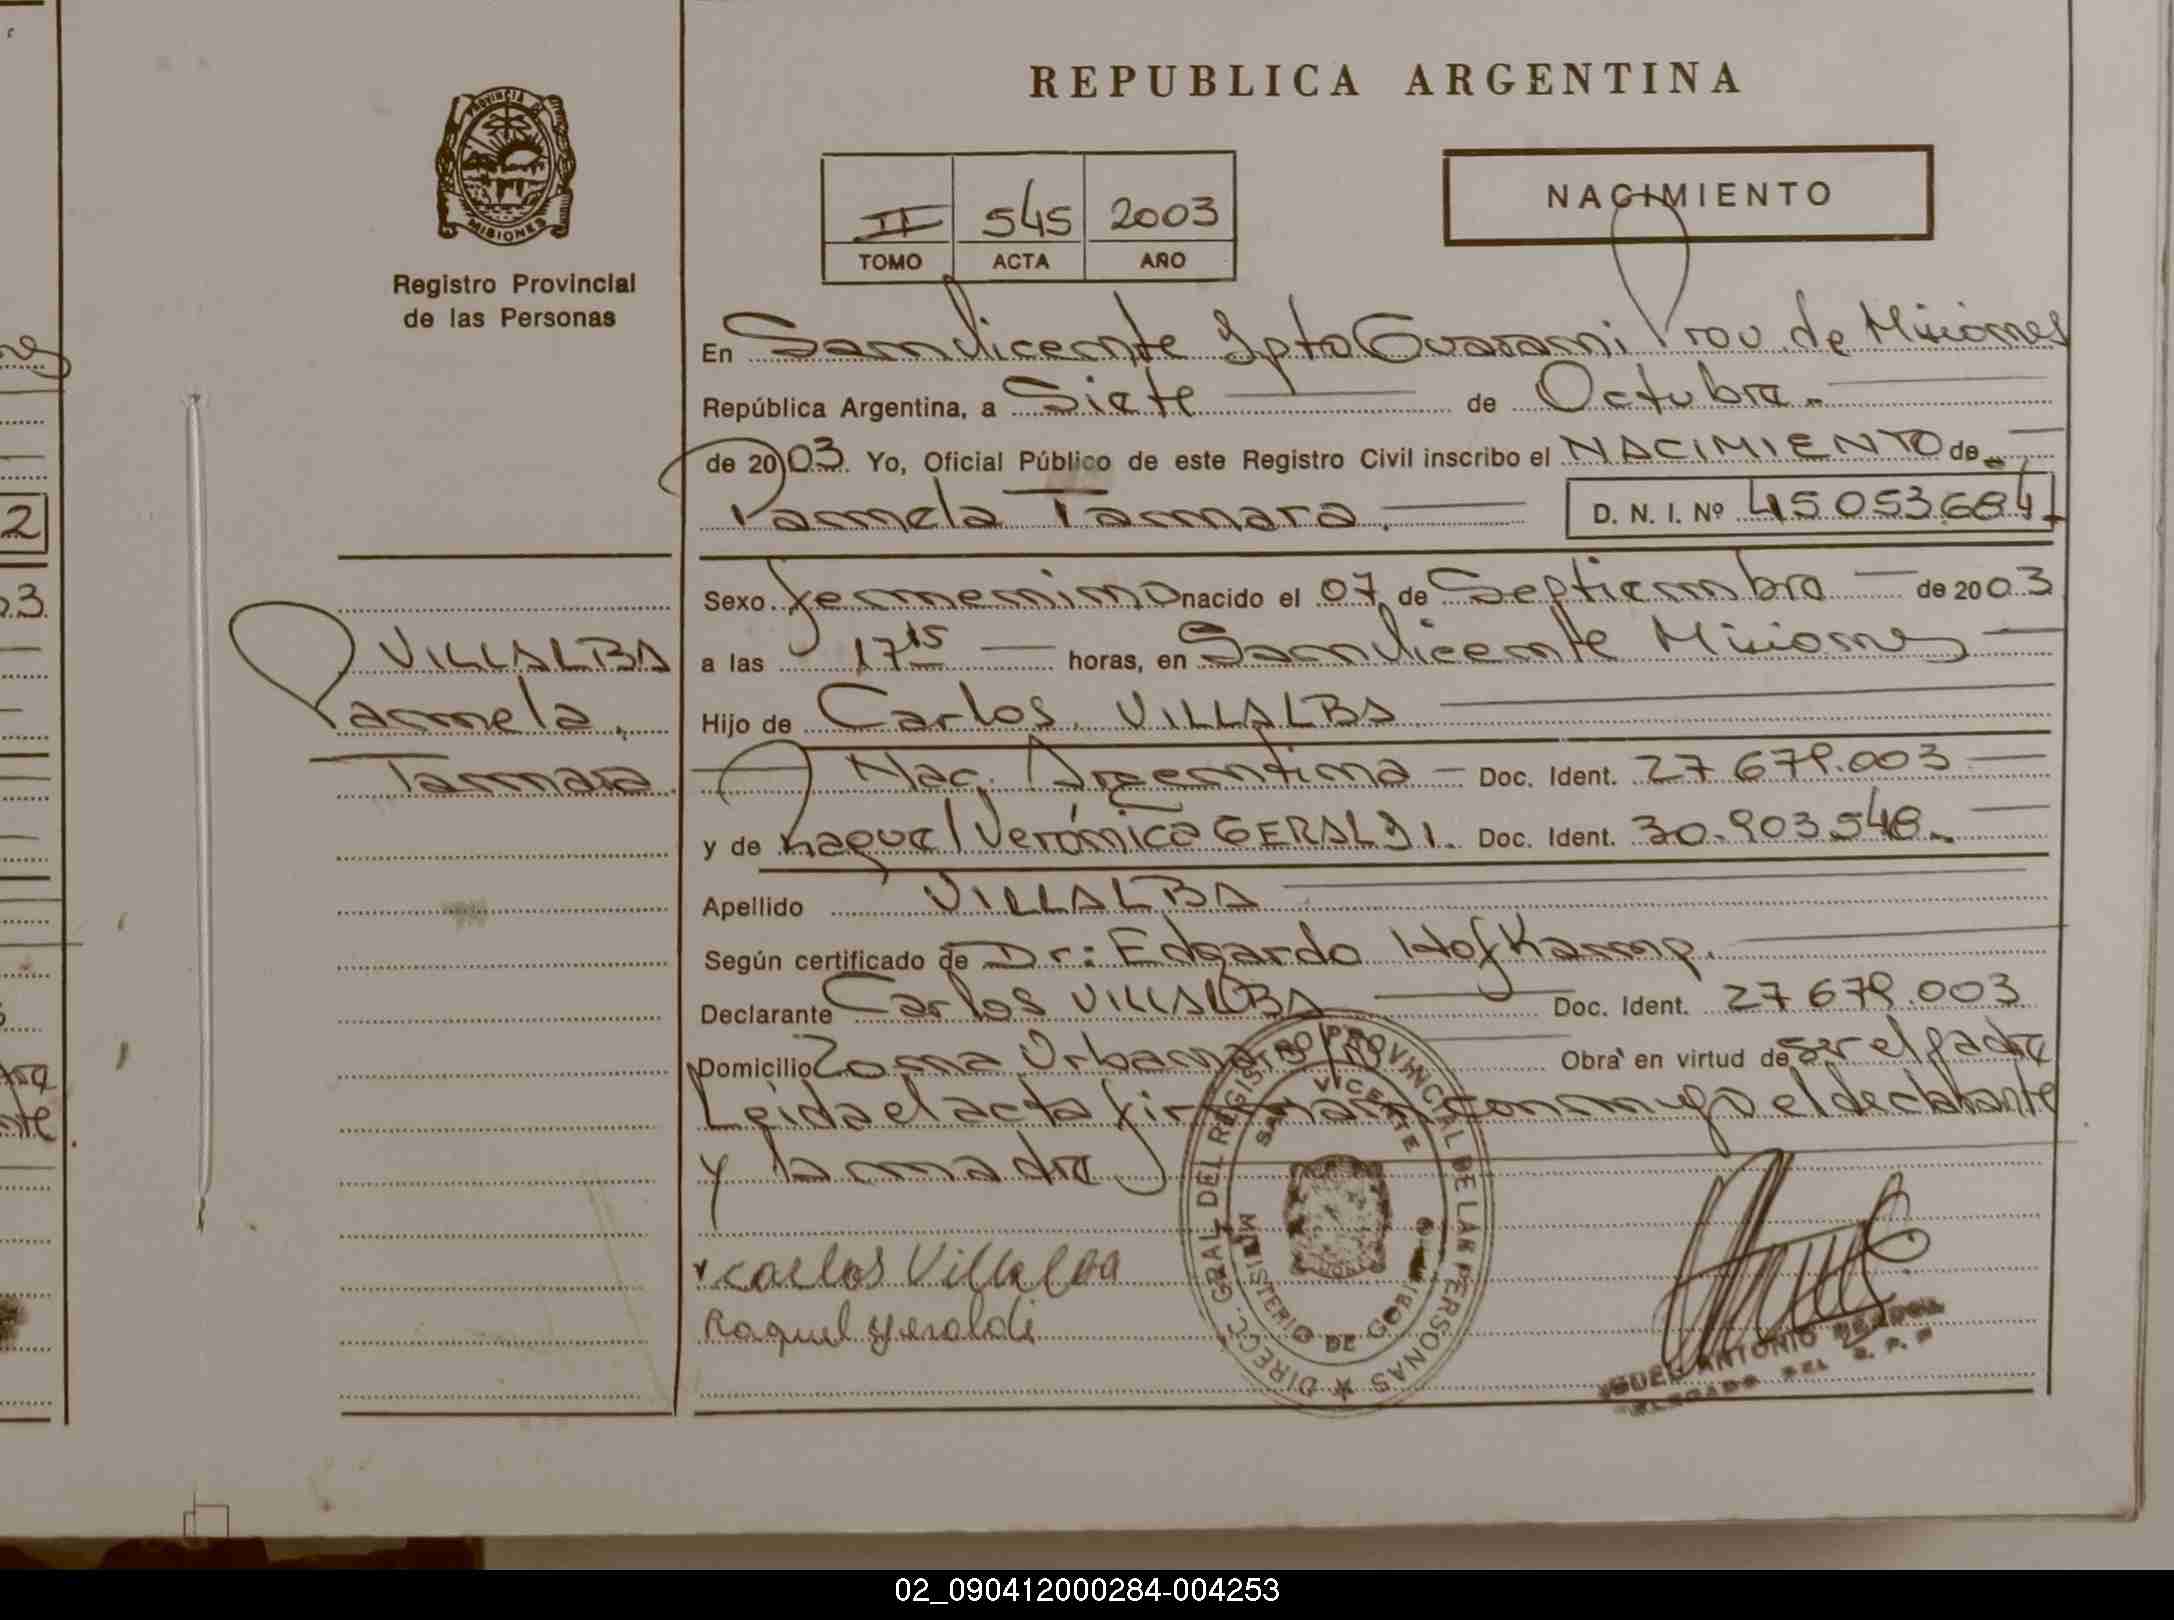 REPUBLICA ARGENTINA
PROVINCIA DE
MISIONES
Registro Provincial
de las Personas
II 545 2003
TOMO ACTA AÑO
NACIMIENTO
En San Vicente Dpto Guarani Prov. de Misiones
República Argentina, a Siete de Octubre.-
de 2003. Yo, Oficial Público de este Registro Civil inscribo el NACIMIENTO de
Pamela Tamara. D. N. I. Nº 45053684
Sexo femenino nacido el 07 de Septiembre de 2003
a las 17 15 horas, en San Vicente Misiones
Hijo de Carlos VILLALBA
Nac. Argentina Doc. Ident. 27 679.003
y de Raquel Verónica GERALDI. Doc. Ident. 30.903 548.
Apellido VILLALBA
Según certificado de Dr: Edgardo Hofkamp.
Declarante Carlos VILLALBA Doc. Ident. 27 679.003
Domicilio Zona Urbana Obra en virtud de ser el padre
Leida el acta firman conmigo el declarante
y la madre
VILLALBA
Pamela,
Tamara
Carlos Villalba
Raquel Geraldi
DIRECC. GRAL. DEL REGISTRO PROVINCIAL DE LAS PERSONAS
SAN VICENTE
MINISTERIO DE GOBIERNO
ANTONIO
02_090412000284-004253